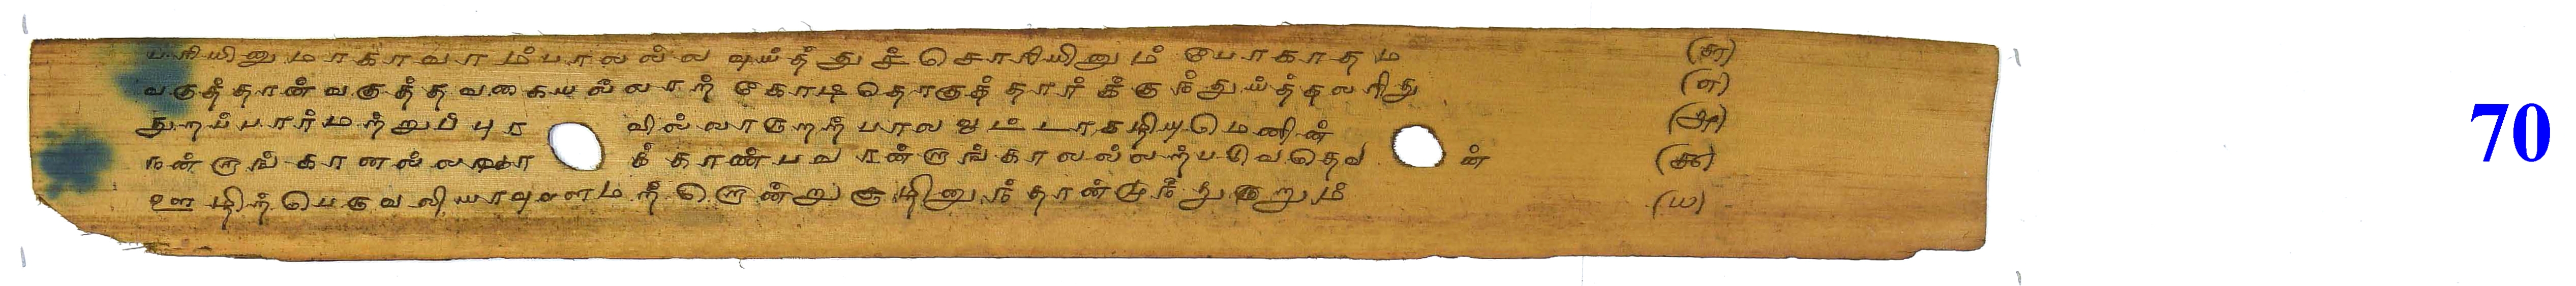 பரியினுமாகாவாம்பாலல்ல வுய்த்துச்சொரியினும் போகாதம (௬)
வகுத்தான்வகுத்தவகையல்லாற் கோடிதொகுத்தார்க்குந்துய்த்தலரிது (௭)
துறப்பார்மற்றுப்புர வில்லாருறற்பால வூட்டாகழியுமெனின் (௮)
நன்றாங்கானல்லவா க்காண்பவ ரன்றாங்காலல்லற்படுவதெவ ன் (௯)
ஊழிற்பெருவலியாவுளமற்றொன்று சூழினுந்தான்முந்துறும் (ய)
70